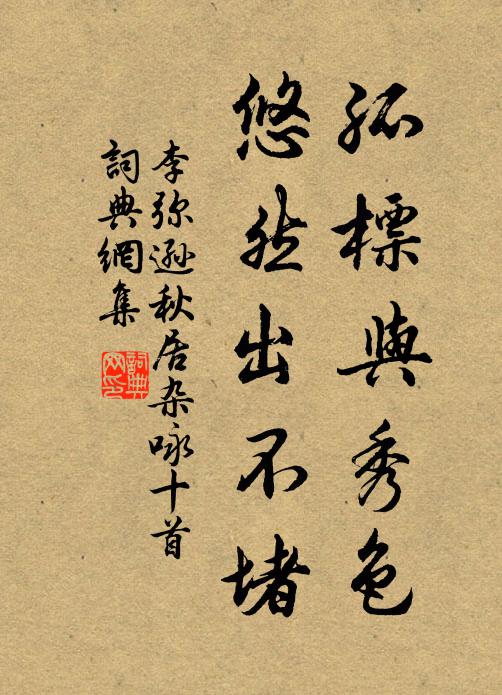 孤標與秀色
悠然出不堵
李弥遜秋居杂咏十首
詞典網集
詞典
网印